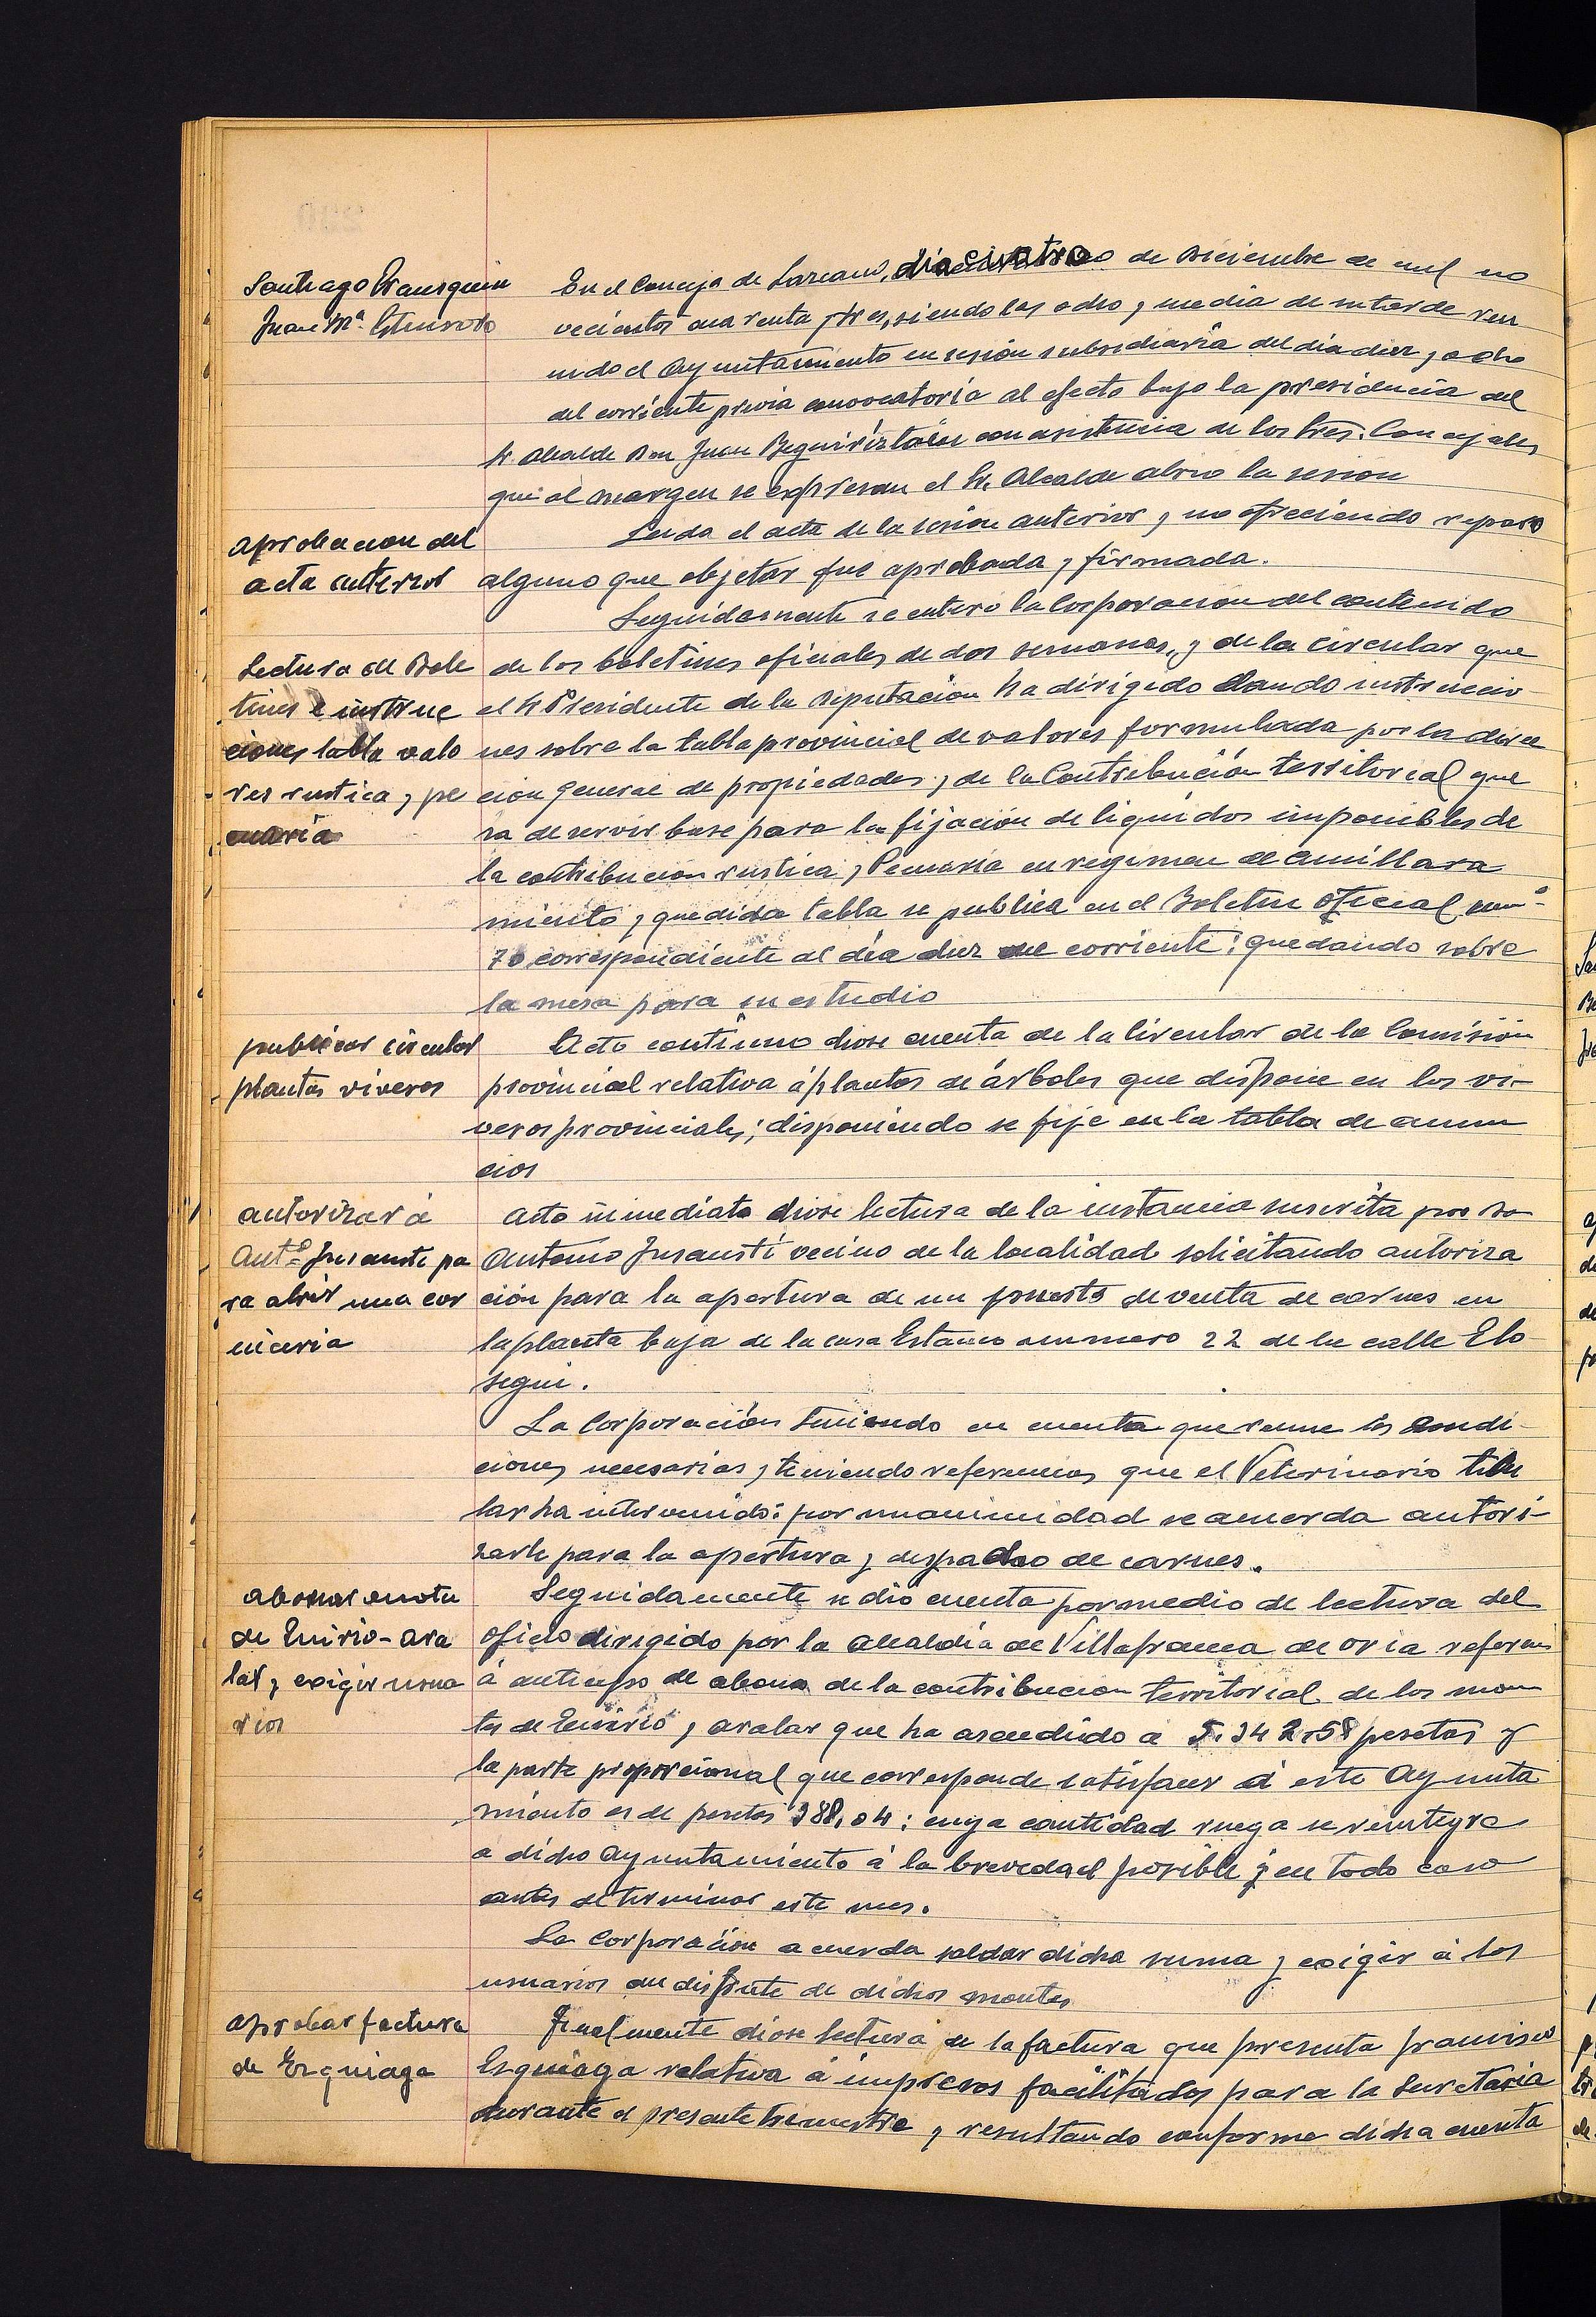 Santiago
Juan Mª
En el Concejo de Lazcano, dia cuatro de Diciembre de mil no
vecientos cuarenta y tres, siendo las ocho y media de su tarde reu
nido el Ayuntamiento en sesión subsidiaria del dia diez y ocho
del corriente previa convocatoria al efecto bajo la presidencia del
Sr. Alcalde Don Juan Beguiristáin con asistencia de los Sres. Concejales
que al margen se expresan el Sr. Alcalde abrio la sesion
aprobacion del
acta anterior
Leida el acta de la sesion anterior y no ofreciendo reparo
alguno que objetar fue aprobada y firmada.
Seguidamente se enteró la Corporacion del contenido
Lectura de Bole
tines e instruc
ciones tabla valo
res rustica y pe
cuaria
de los boletines oficiales de dos semanas, y de la circular que
el Sr Presidente de la Diputación ha dirigido dando instruccio
nes sobre la tabla provincial de valores formulada por la direc
cion General de propiedades y de la Contribución territorial que
ha de servir base para la fijación de liquidos imponibles de
la contribucion rustica y Pecuaria en regimen de amillara
miento y que dicha tabla se publica en el Boletin oficial num.º
70 correspondiente al dia diez del corriente: quedando sobre
la mesa para su estudio
publicar circular
plantas viveros
Acto continuo diose cuenta de la Circular de la Comisión
provincial relativa á plantas de árboles que dispone en los vi-
veros provinciales; disponiendo se fije en la tabla de anun
cios
autorizar á
Antº Insausti pa
ra abrir una car
niceria
Acto inmediato diose lectura de la instancia suscrita por Dn
Antonio Insausti vecino de la localidad solicitando autoriza
ción para la apertura de un puesto de venta de carnes en
la planta baja de la casa Estanco numero 22 de la calle Elo
segui.
La Corporación teniendo en cuenta que reune las condi-
ciones necesarias y teniendo referencias que el Veterinario titu
lar ha intervenido: por unanimidad se acuerda autori-
zarle para la apertura y despacho de carnes.
abonar cuota
de Enirio-Ara
lar y exigir usua
rios
Seguidamente se dió cuenta por medio de lectura del
oficio dirigido por la Alcaldia de Villafranca de Oria referen
á anticipo de abono de la contribucion territorial de los mon
tes de Enirio y aralar que ha ascendido a 5.342,58 pesetas y
la parte proporcional que corresponde satisfacer á este Ayunta
miento es de pesetas 388,04: cuya cantidad ruega se reintegre
a dicho Ayuntamiento á la brevedad posible y en todo caso
antes de terminar este mes.
La Corporación acuerda saldar dicha suma y exigir á los
usuarios su disfrute de dichos montes
aprobar factura
de Ezquiaga
Finalmente diose lectura de la factura que presenta francisco
Esquiaga relativa á impresos facilitados para la Secretaria
durante el presente trimestre y resultando conforme dicha cuenta